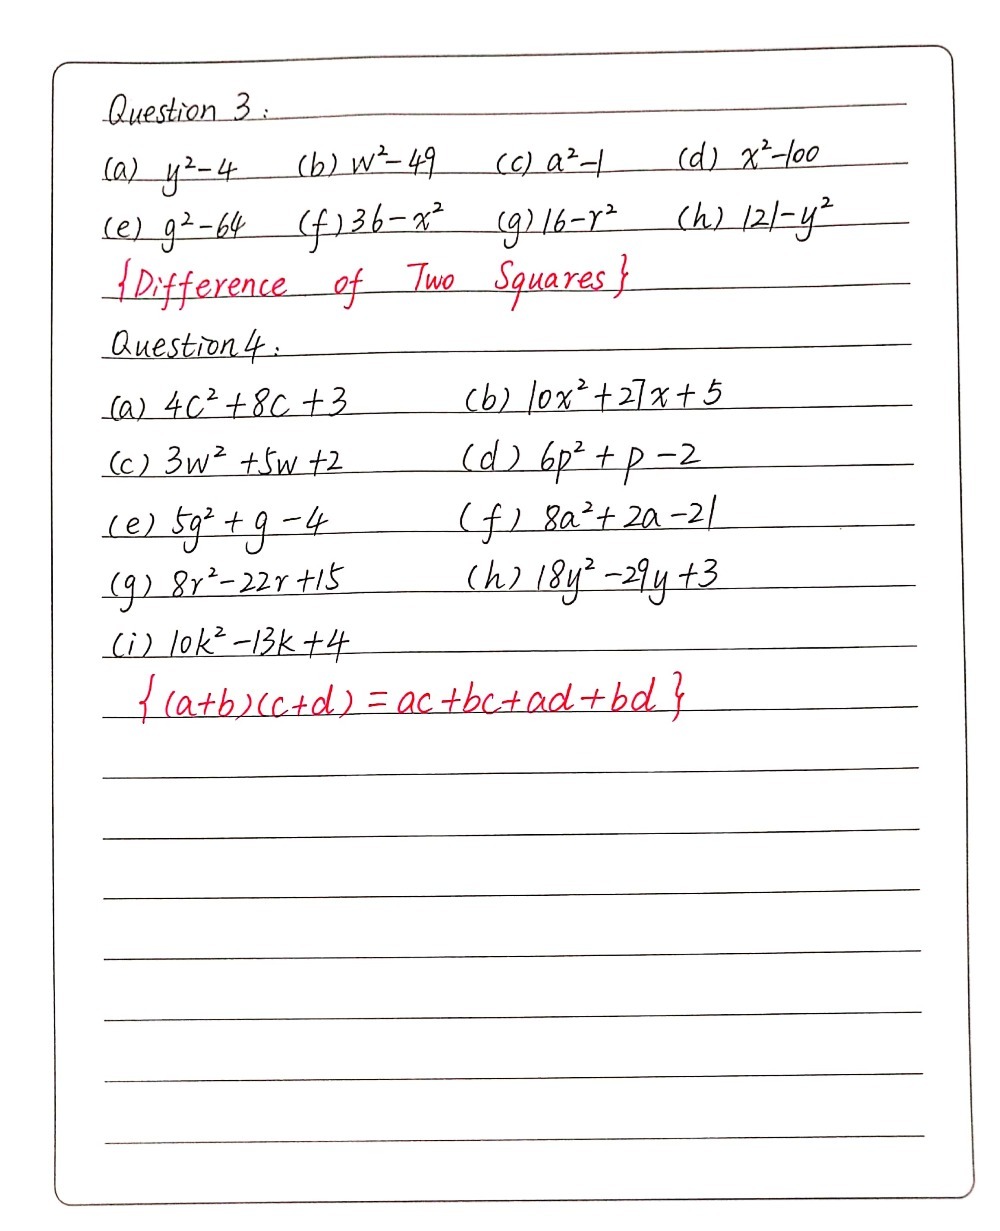 Question 3:
(a) y²-4 (b) w²-49 (c) a²-1 (d) x²-100
(e) g²-64 (f) 36-x² (g) 16-r² (h) 121-y²
{Difference of Two Squares}
Question 4:
(a) 4c²+8c+3 (b) 10x²+27x+5
(c) 3w²+5w+2 (d) 6p²+p-2
(e) 5g²+g-4 (f) 8a²+2a-21
(g) 8r²-22r+15 (h) 18y²-29y+3
(i) 10k²-13k+4
{(a+b)(c+d)=ac+bc+ad+bd}